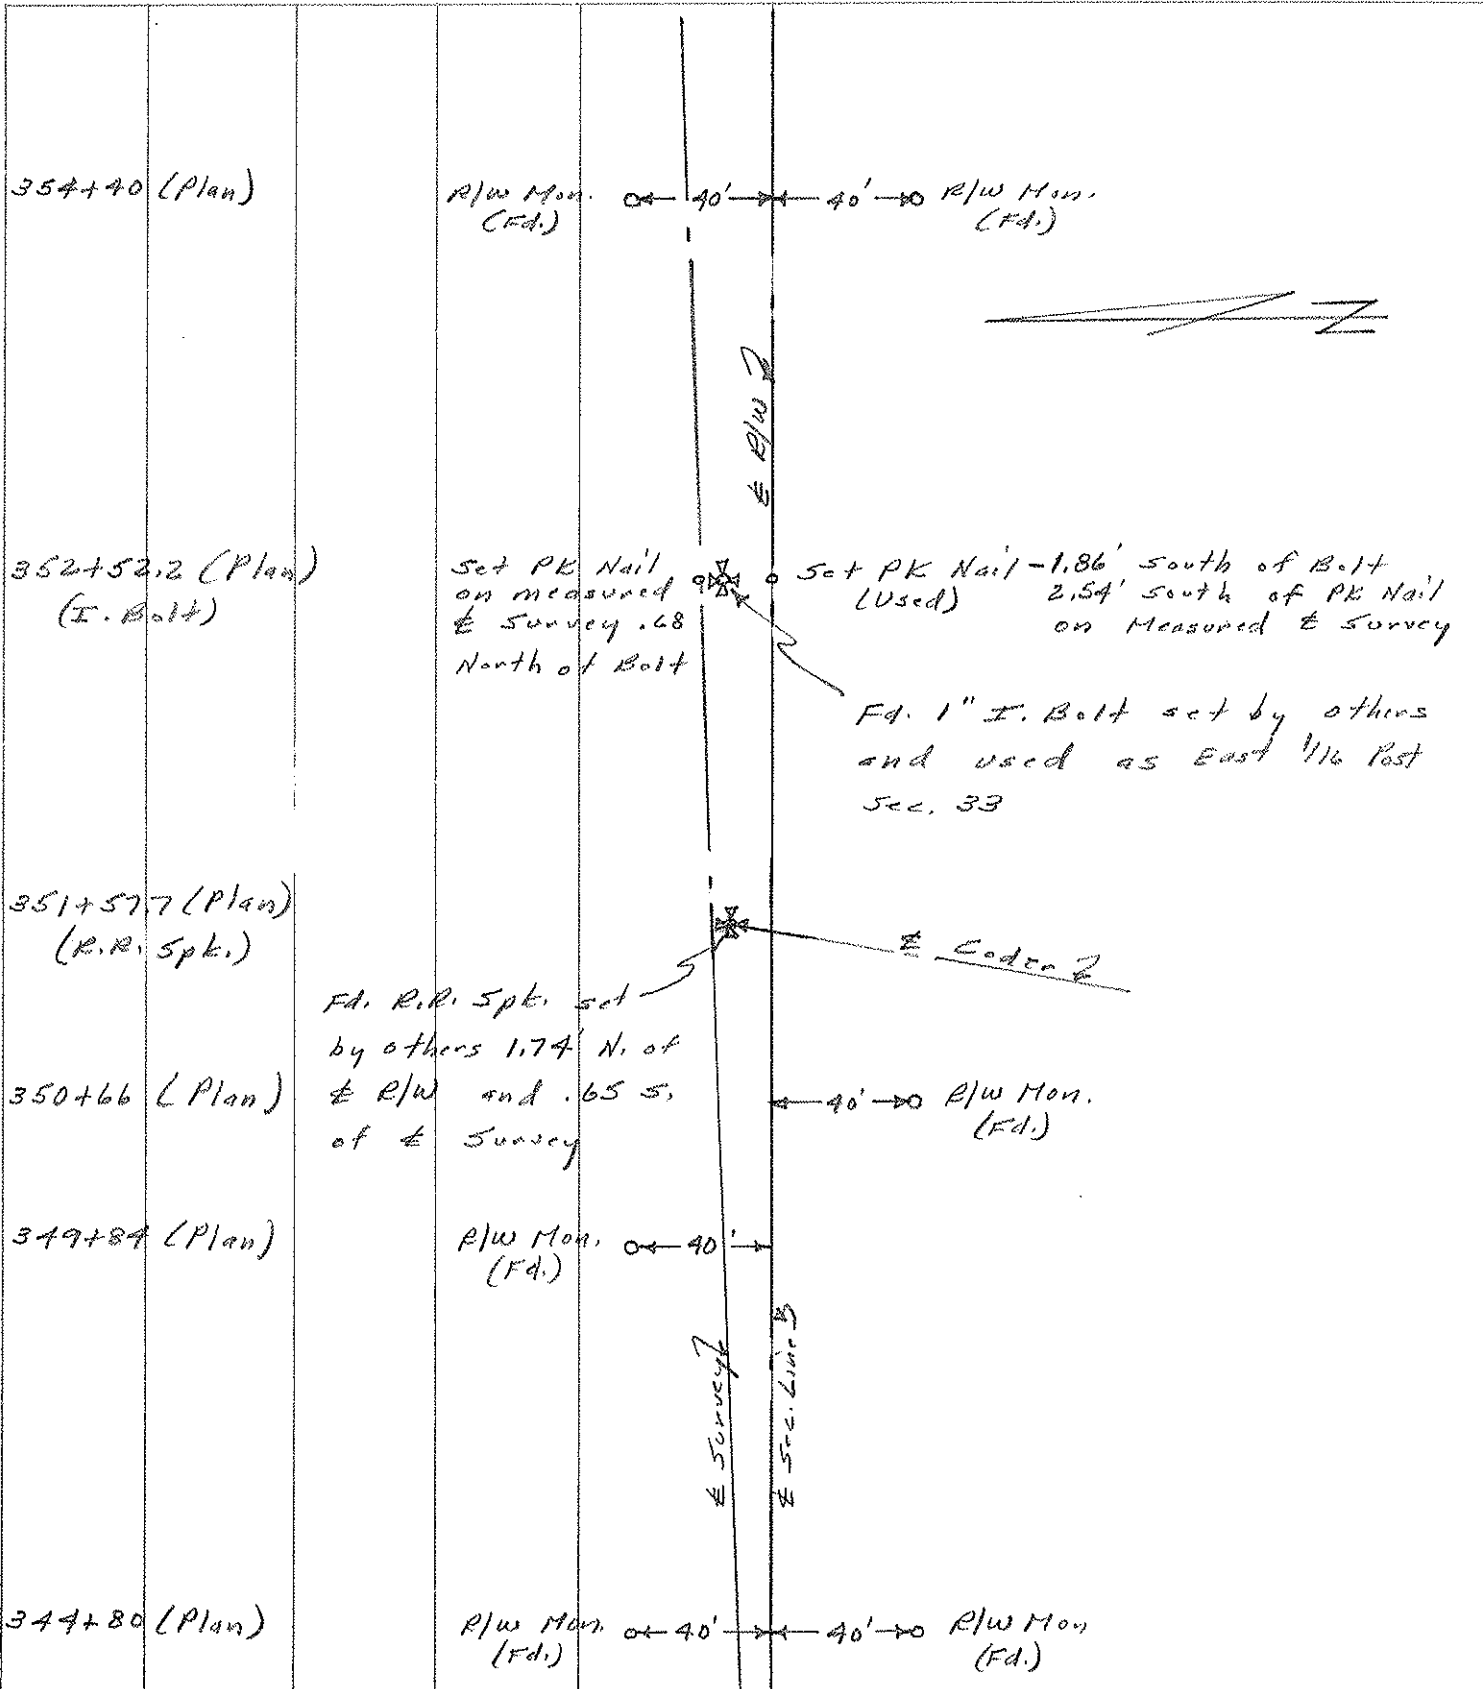 354+40 (Plan)
R/W Mon.
(Fd.)
40'
40'
R/W Mon.
(Fd.)
N
℄ R/W
352+52.2 (Plan)
(I. Bolt)
Set PK Nail
on measured
℄ Survey .68
North of Bolt
Set PK Nail - 1.86' South of Bolt
(Used) 2.54' South of PK Nail
on Measured ℄ Survey
Fd. 1" I. Bolt set by others
and used as East 1/16 Post
Sec. 33
351+57.7 (Plan)
(R.R. Spk.)
℄ Coden
Fd. R.R. Spk. set
by others 1.74' N. of
℄ R/W and .65 S.
of ℄ Survey
350+66 (Plan)
40'
R/W Mon.
(Fd.)
349+84 (Plan)
R/W Mon.
(Fd.)
40'
℄ Survey
℄ Sec. Line
344+80 (Plan)
R/W Mon.
(Fd.)
40'
40'
R/W Mon
(Fd.)